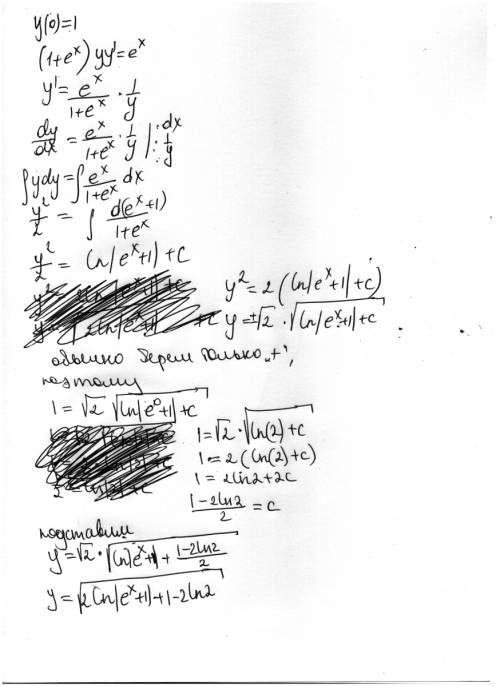 y(0)=1
(1+eˣ) yy' = eˣ
y' = eˣ/(1+eˣ) · 1/y
dy/dx = eˣ/(1+eˣ) · 1/y | ·dx :1/y
∫ydy = ∫ eˣ/(1+eˣ) dx
y²/2 = ∫ d(eˣ+1)/(1+eˣ)
y²/2 = ln|eˣ+1| + c
y² = 2(ln|eˣ+1| + c)
y = ±√2 · √(ln|eˣ+1| + c)
обычно берем только „+",
поэтому
1 = √2 √(ln|e⁰+1| + c)
1 = √2 · √(ln(2) + c)
1 = 2(ln(2) + c)
1 = 2ln2 + 2c
(1-2ln2)/2 = c
подставим
y = √2 · √(ln|eˣ+1| + (1-2ln2)/2)
y = √(2ln|eˣ+1| + 1-2ln2)